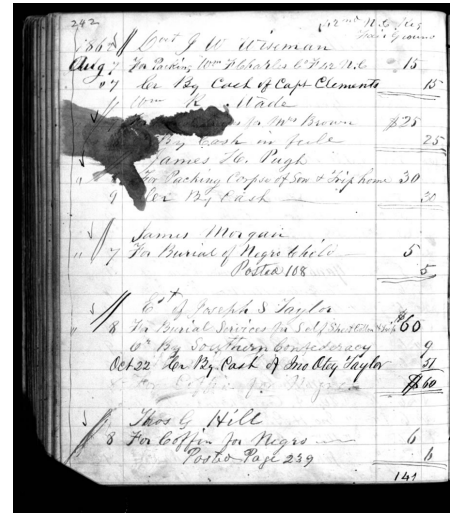 242
42nd N.C. Reg
Fair Ground
186 Govt J W Wiseman
Aug 7 For Packing Wm H Charles Co F 42 N.C. 15
"7 Cr By Cash of Capt Clements 15
Wm K. Wade
for Mrs Brown $25
By Cash in full 25
James H. Pugh
" For Packing Corpse of Son & Trip home 30
9 Cr By Cash 30
James Morgan
" 7 For Burial of Negro Child 5
Posted 108 5
Est of Joseph S Taylor
" 8 For Burial Services for Self $60
Cr By Southern Confederacy 9
Oct 22 Cr By Cash of Jno Otey Taylor 51
$60
Thos G Hill
" 8 For Coffin for Negro 6
Posted Page 239 6
141